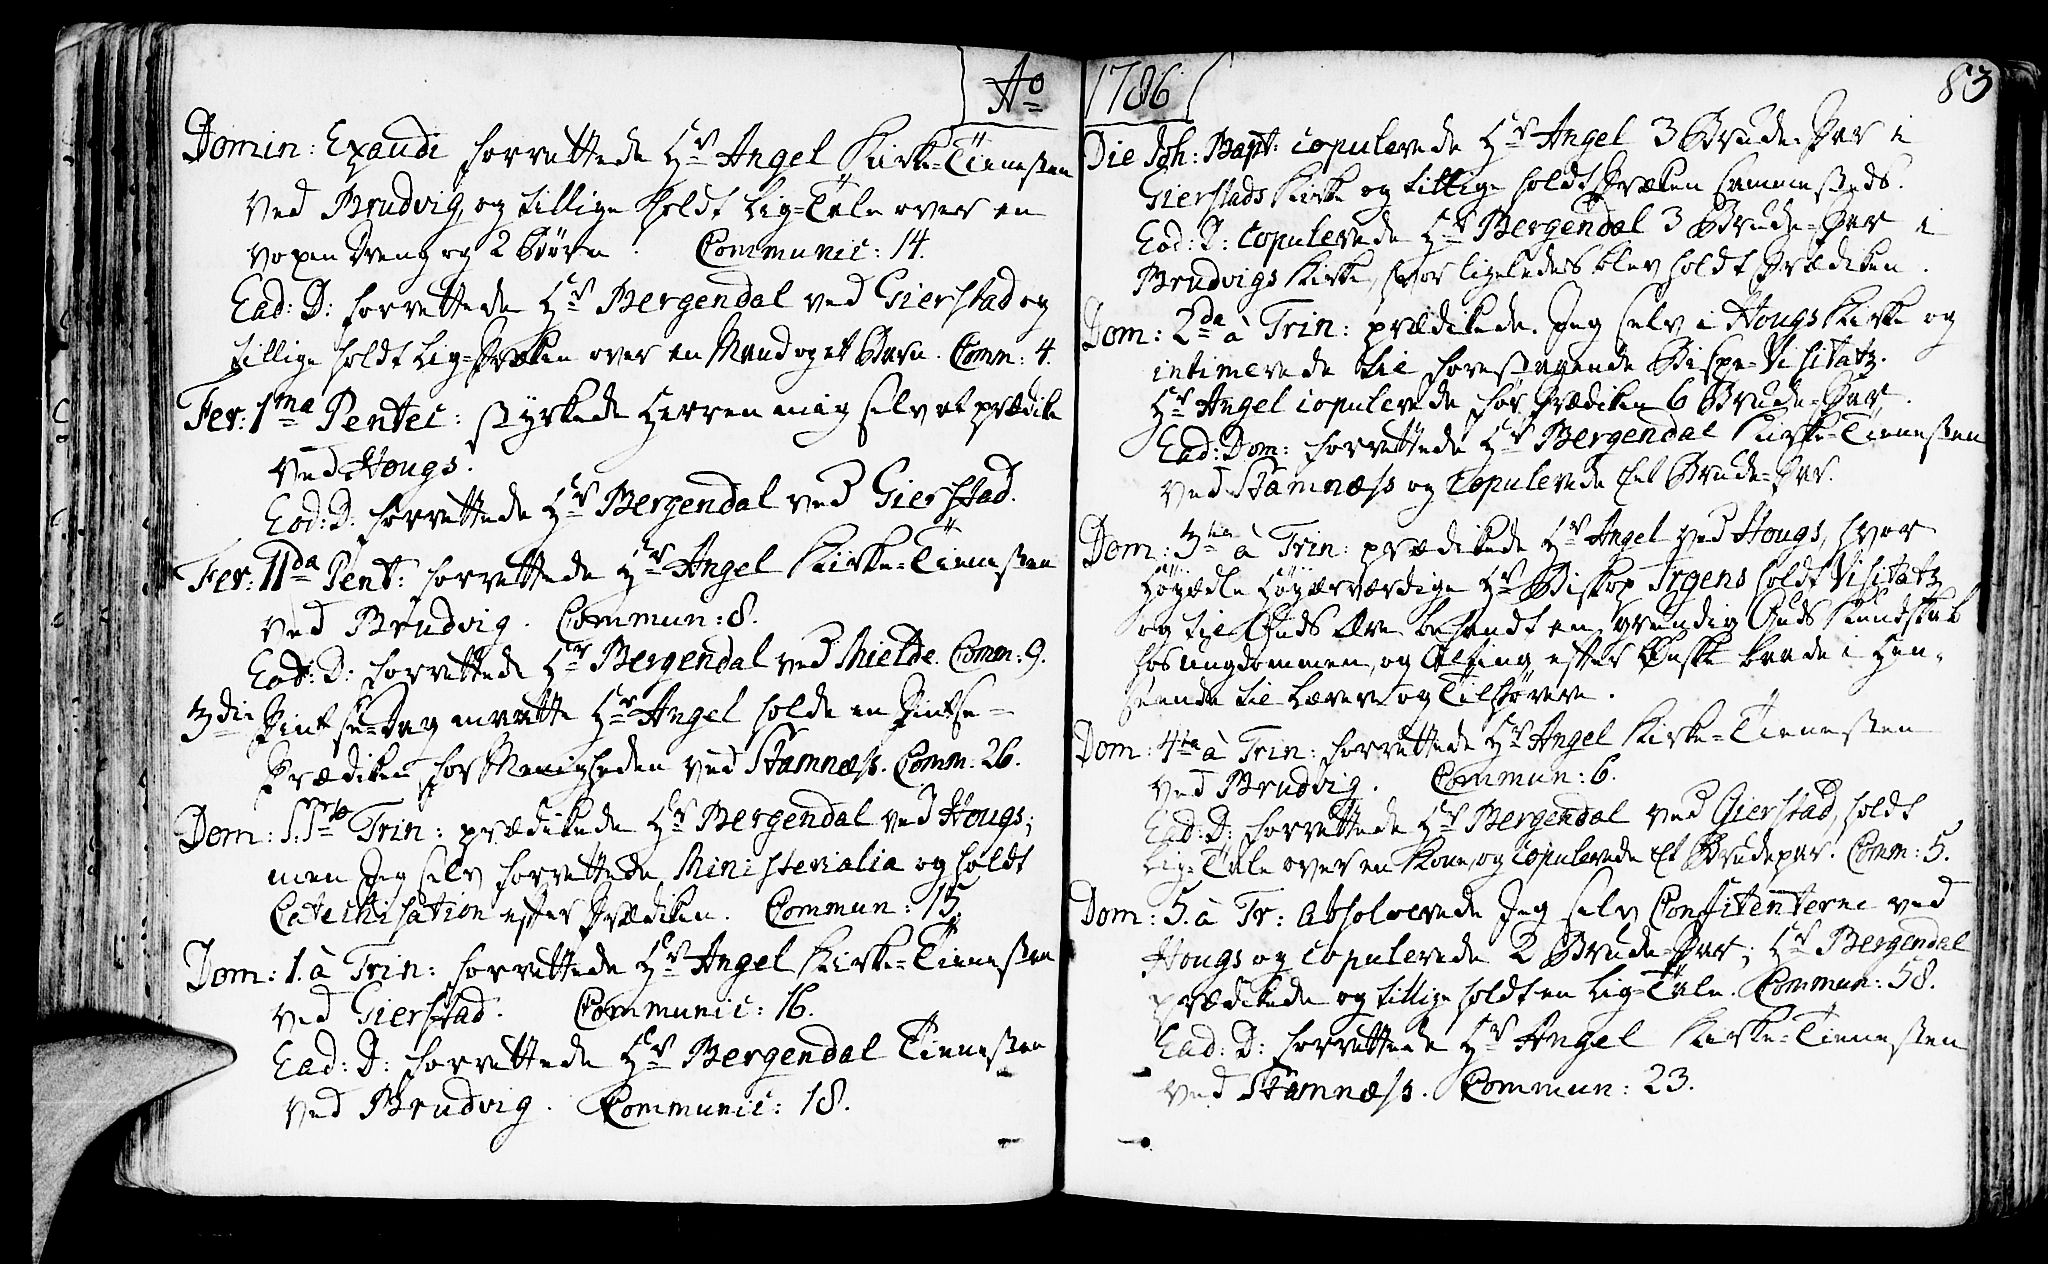 Ao 1786
83
Domin: Exaudi forrettede Hr Angel Kirke-Tienesten
ved Brudvig, og tillige holdt Lig-Tale over en
voxen Dreng og 2 Børn. Communic: 14.
Ead: D: forrettede Hr Bergendal ved Gierstad og
tillige holdt Lig-Præken over en Mand og et Barn. Comm: 4.
Fer: 1ma Pentec: styrkede Herren mig selv at prædike
ved Hougs.
Eod: D: forrettede Hr Bergendal ved Gierstad.
Fer: IIda Pent: forrettede Hr Angel Kirke-Tienesten
ved Brudvig. Commun: 8.
Ead: D: forrettede Hr Bergendal ved Mielde. Comm: 9.
3die Pintse-Dag maatte Hr Angel holde en Pintse-
Prædiken for Menigheden ved Stamnæss. Comm: 26.
Dom: S: Trin: prædikede Hr Bergendal ved Hougs;
men Jeg selv forrettede Ministerialia og holdt
Catechisation efter Prædiken. Commun: 15.
Dom: 1. à Trin: forrettede Hr Angel Kirke-Tienesten
ved Gierstad. Communic: 16.
Ead: D: forrettede Hr Bergendal Tienesten
ved Brudvig. Communic: 18.
Die Joh: Bapt: copulerede Hr Angel 3 Brude-Par i
Gierstads Kirke og tillige holdt Præken sammesteds.
Eod: D: copulerede Hr Bergendal 3 Brude-Par i
Brudvigs Kirke, hvor ligeledes blev holdt Prædiken.
Dom: 2da à Trin: prædikede Jeg selv i Hougs Kirke og
intimerede til forestaaende Bispe-Visitatz.
Hr Angel copulerede før Prædiken 6 Brude-Par.
Ead: Dom: forrettede Hr Bergendal Kirke-Tienesten
ved Stamnæss og copulerede Et Brude-Par.
Dom: 3tia à Trin: prædikede Hr Angel ved Hougs, hvor
Høyædle Høyærværdige Hr Biskop Irgens holdt Visitatz
og til Guds Ære befandt en grundig Guds Kundskab
hos ungdommen, og Alting efter Ønske baade i Hen-
seende til Lærere og Tilhørere.
Dom: 4ta à Trin: forrettede Hr Angel Kirke-Tienesten
ved Brudvig. Commun: 6.
Ead: D: forrettede Hr Bergendal ved Gierstad, holdt
Lig-Tale over en Kone, og copulerede Et Brudepar. Comm: 5.
Dom: 5. à Tr: absolverede Jeg selv Confitenterne ved
Hougs og copulerede 2 Brude-Par; Hr Bergendal
prædikede og tillige holdt en Lig-Tale. Commun: 58.
Ead: D: forrettede Hr Angel Kirke-Tienesten
ved Stamnæss. Commun: 23.